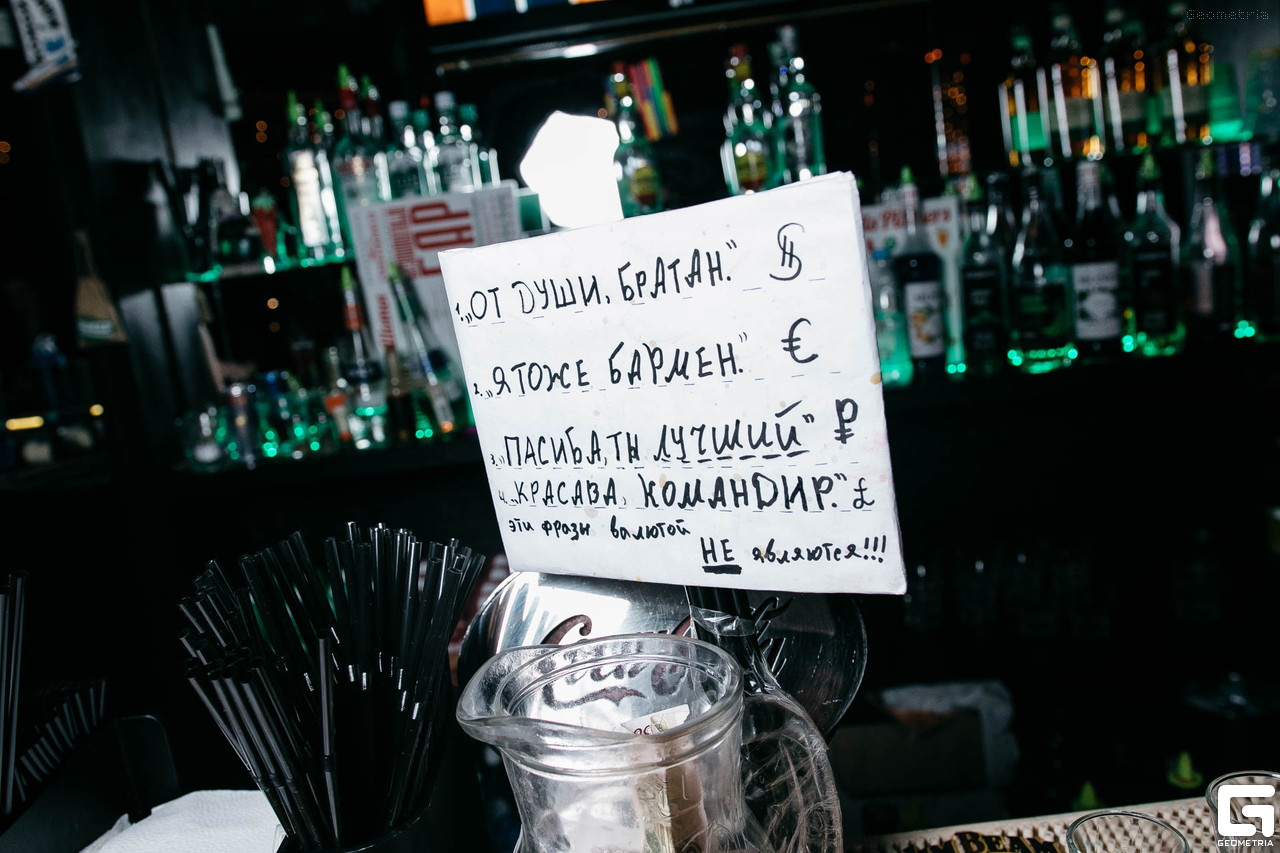 Geometria
БАР
1. „ОТ ДУШИ, БРАТАН.” $
2. „Я ТОЖЕ БАРМЕН.” €
3. „ПАСИБА, ТЫ ЛУЧШИЙ” ₽
4. „КРАСАВА, КОМАНДИР.” £
эти фразы валютой
НЕ являются!!!
BEAM
GEOMETRIA